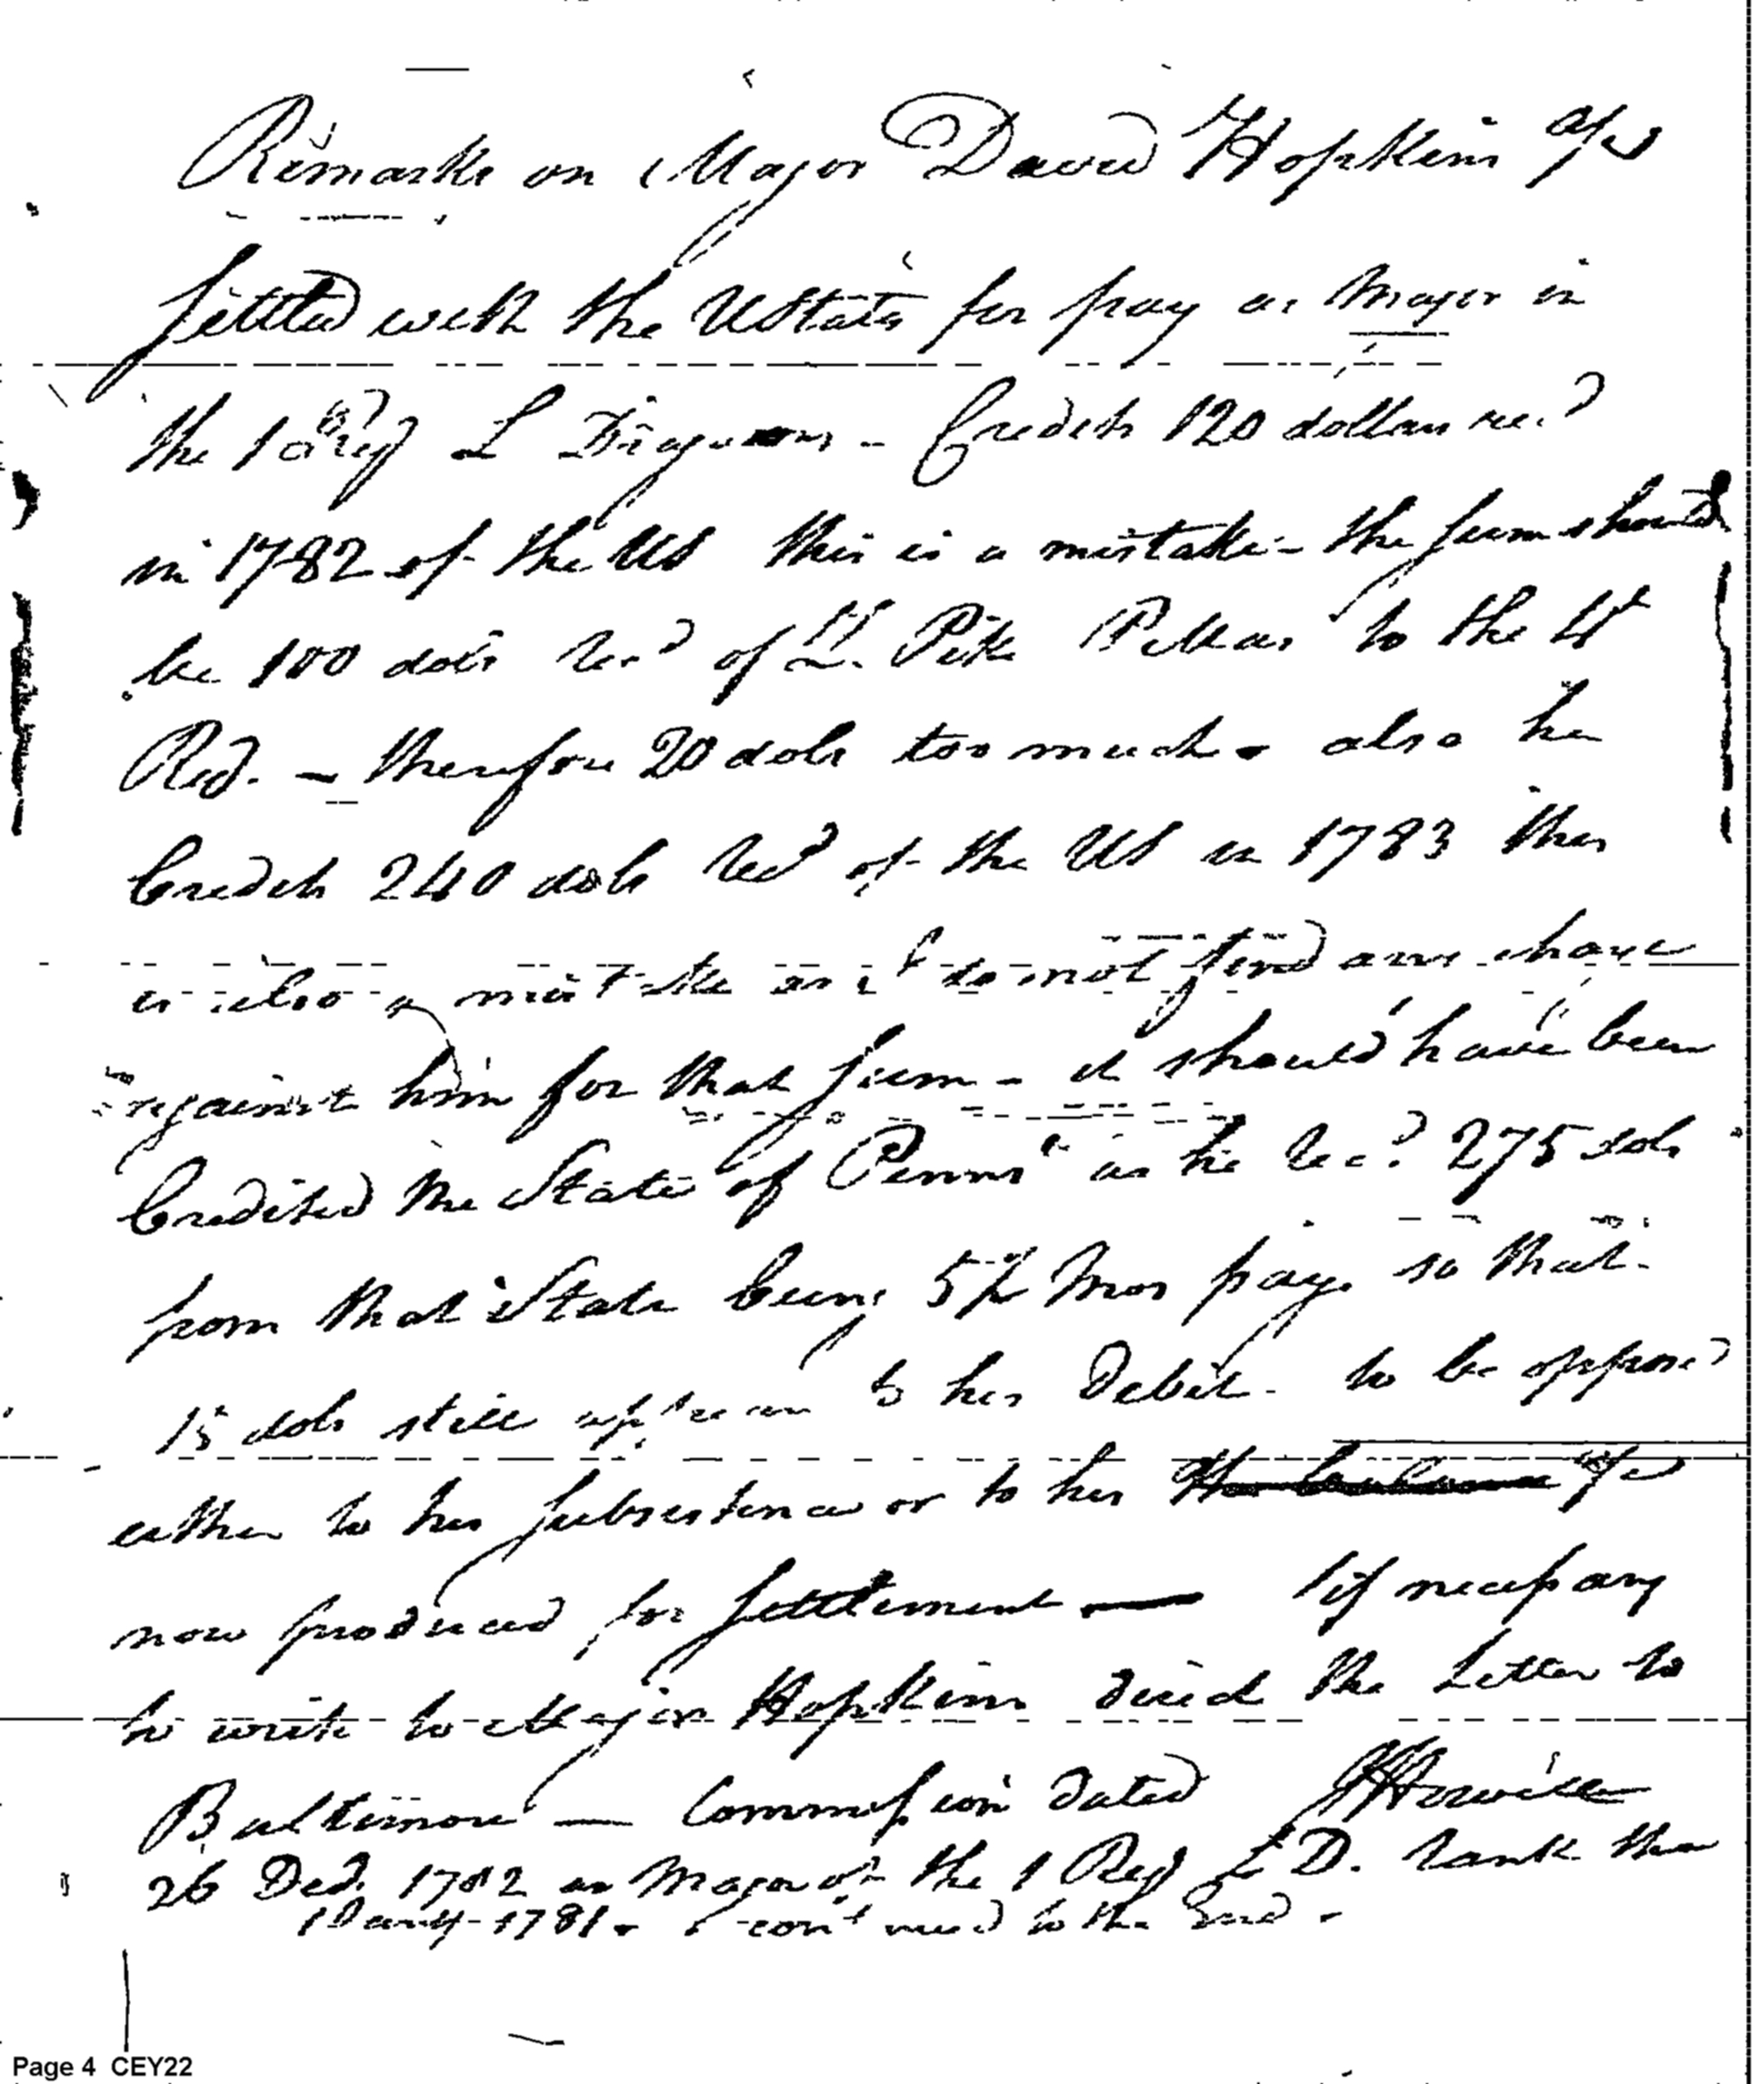 Remarks on Major David Hopkins a/c
settled with the UStates for pay as Major in
the 1st Reg L Dragoons - Credits 120 dollars recd
in 1782 of the US this is a mistake - the sum should
be 100 dols Recd of Lt. Pike P Mas to the 4t
Red. - therefore 20 dols too much - also he
Credits 240 dols Recd of the US in 1783 this
is also a mistake as I do not find any charge
against him for that sum - it should have been
Credited the State of Penns as he Recd 275 dols
from that State being 5½ Mos pay so that
15 dols still appear to his Debit - to be opposed
either to his subsistence or to his a/c
now produced for settlement — if necessary
to write to Major Hopkins direct the Letter to
Baltimore — Commission dated JHowell
26 Decr. 1782 as Major of the 1 Reg L D. rank the
1 Jany - 1781 - continued to the End -
Page 4 CEY22